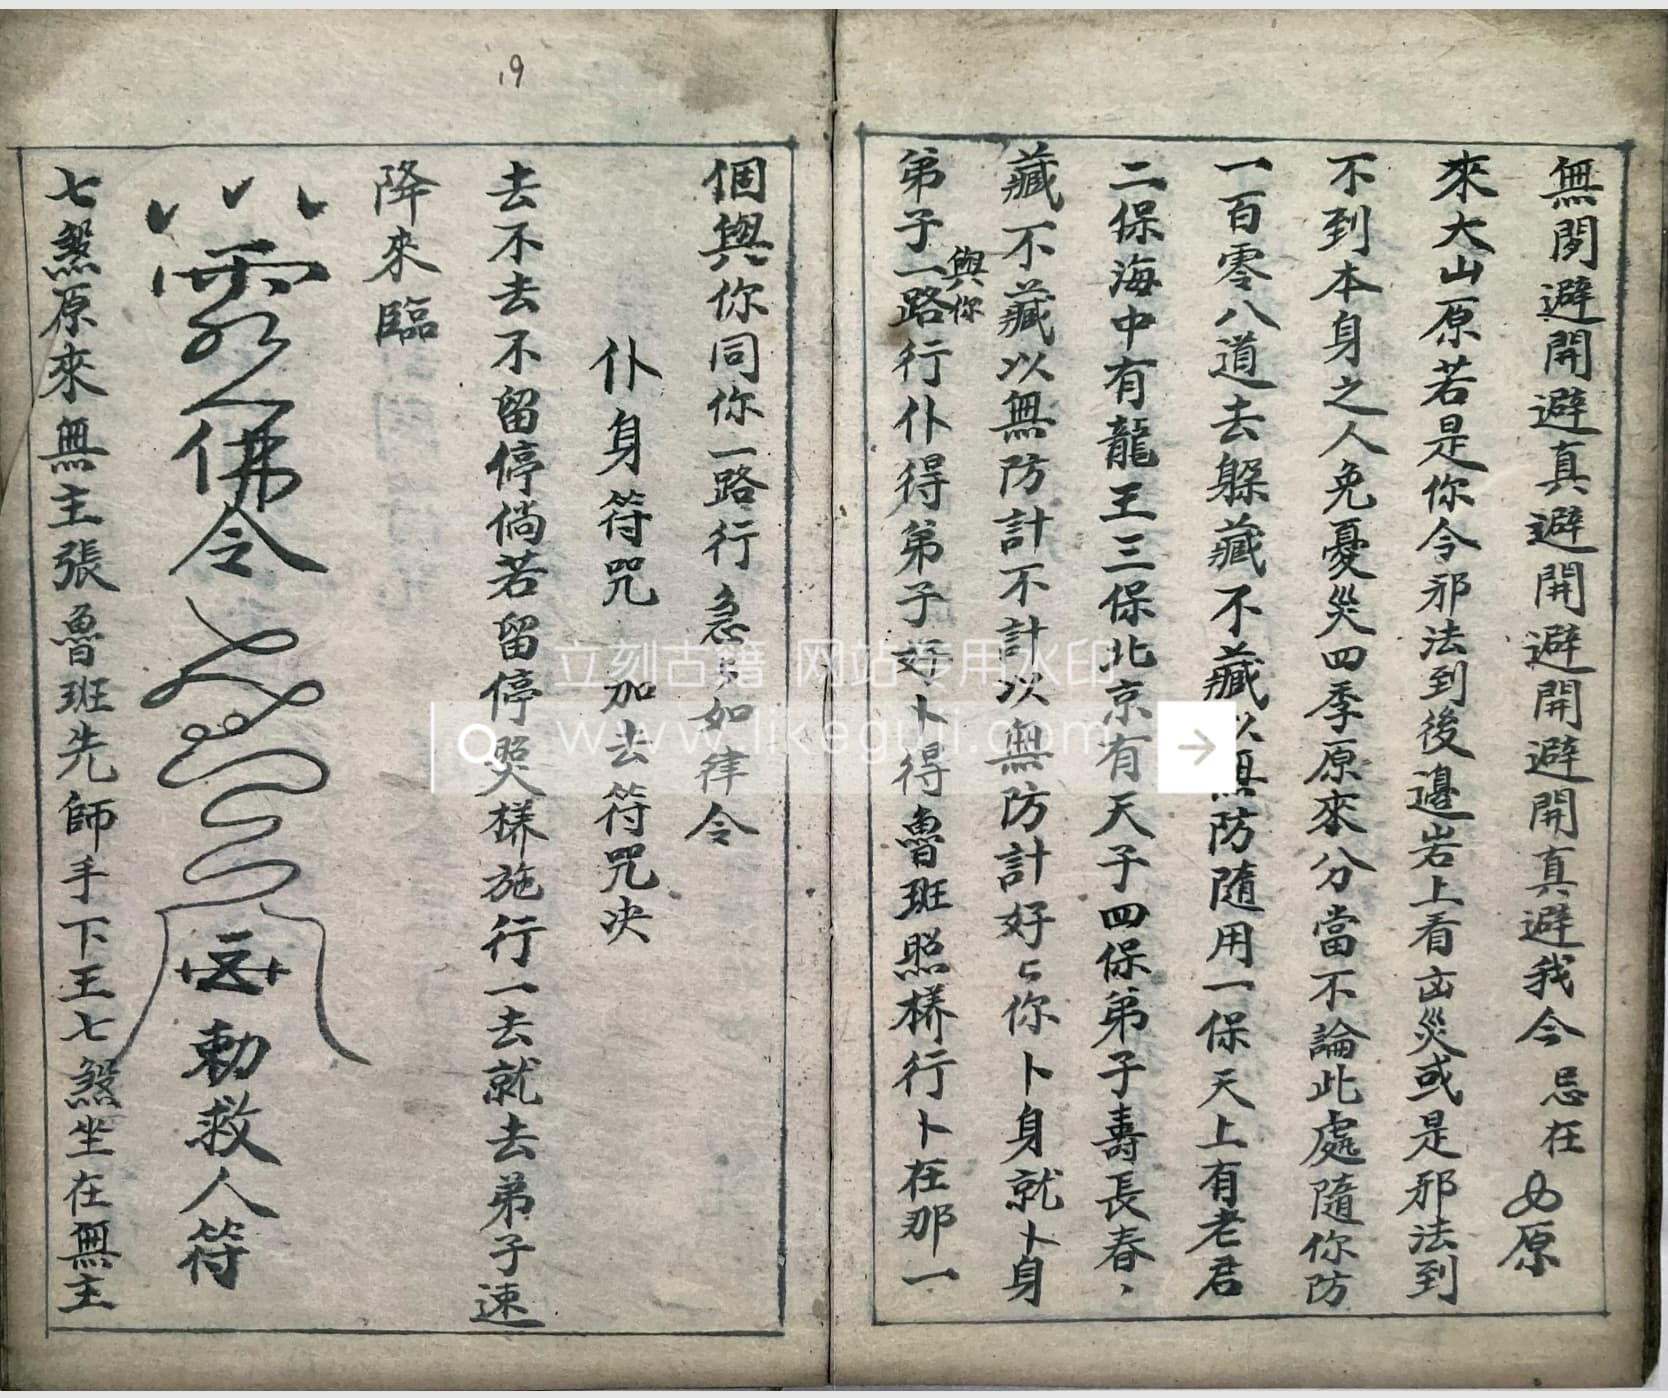 無閉避開避真避開避開避開真避我今忌在
原
來大山原若是你令邪法到後邉岩上看凶災或是邪法到
不到本身之人免憂災四季原來分當不論此處隨你防
一百零八道去躲藏不藏以無防隨用一保天上有老君
二保海中有龍王三保北京有天子四保弟子壽長春、
藏不藏以無防計不計以無防計好〻你卜身就卜身
與你
弟子一路行仆得弟子好卜得魯班照樣行卜在那一
19
個與你同你一路行急〻如律令
仆身符咒 加去符咒决
去不去不留停倘若留停照樣施行一去就去弟子速
降來臨
佛令
勅救人符
七煞原來無主張魯班先師手下王七煞坐在無主
立刻古籍 网站专用水印
www.likeguji.com